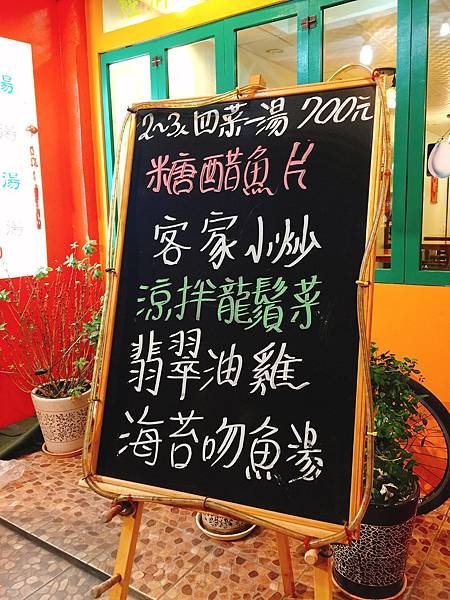 2~3人四菜一湯 700元
糖醋魚片
客家小炒
涼拌龍鬚菜
翡翠油雞
海苔吻魚湯
湯
湯